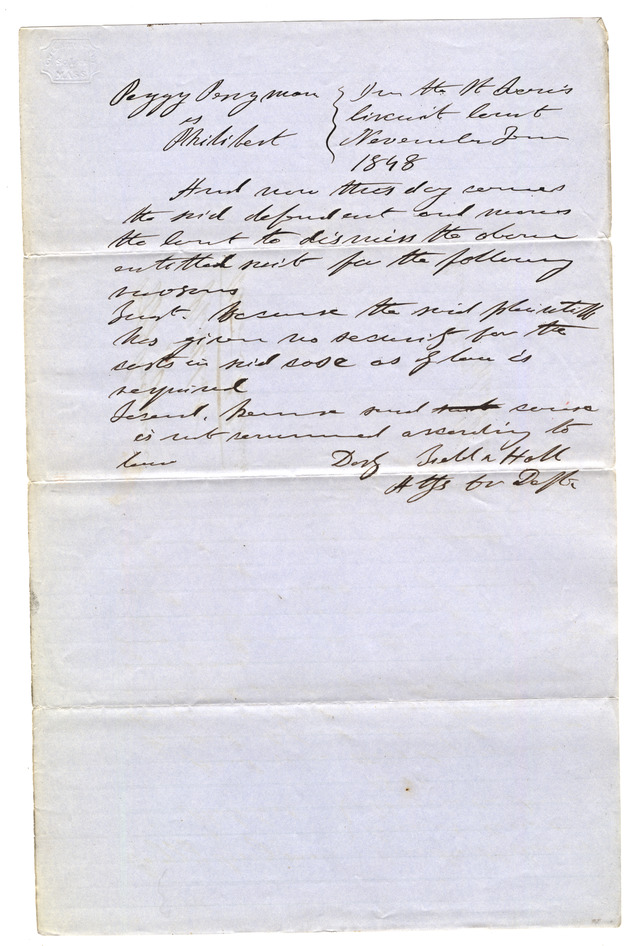 Peggy Perryman { In the St Louis
vs Circuit Court
Philibert November Term
1848
And now this day comes
the said defendent and moves
the Court to dismiss the above
entitled suit for the following
reasons
First. Because the said plaintiff
has given no security for the
costs in said case as of law is
required
Second. because said cause
is not commenced according to
law Field & Hall
Attys for Deft